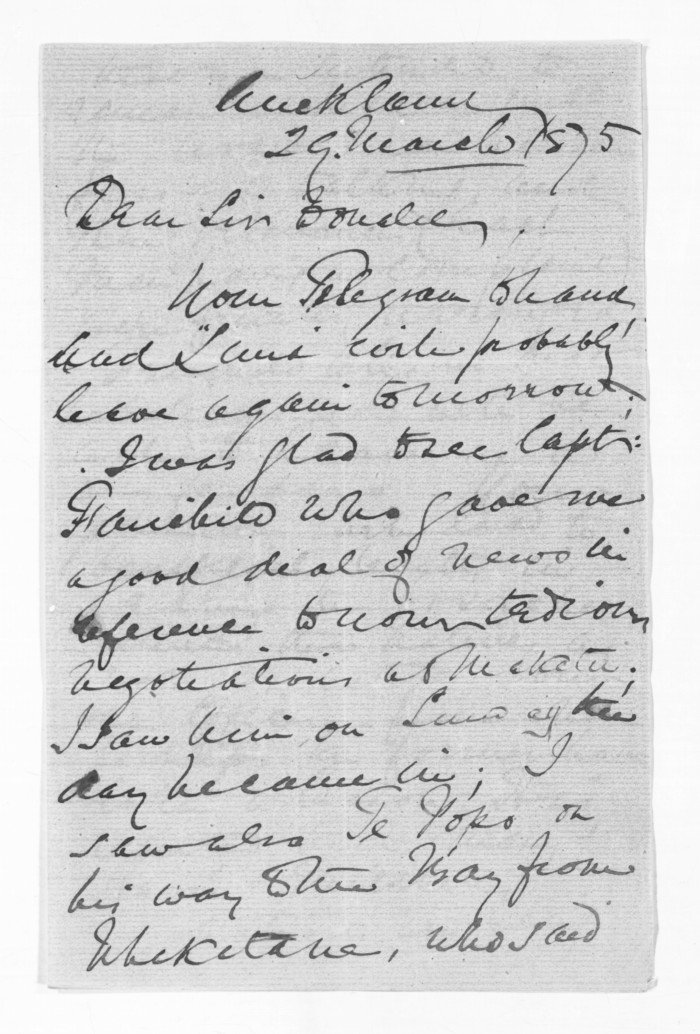 Auckland
29. March 1875
Dear Sir Donald,
Your Telegram to hand
and "Luna" will probably
leave again tomorrow.
I was glad to see Capt:
Fairchild who gave me
a good deal of news in
reference to your tedious
negotiations at Maketu.
I saw him on Sunday the
day he came in; I
saw also Te Popo on
his way to the Bay from
Whakatane, who said